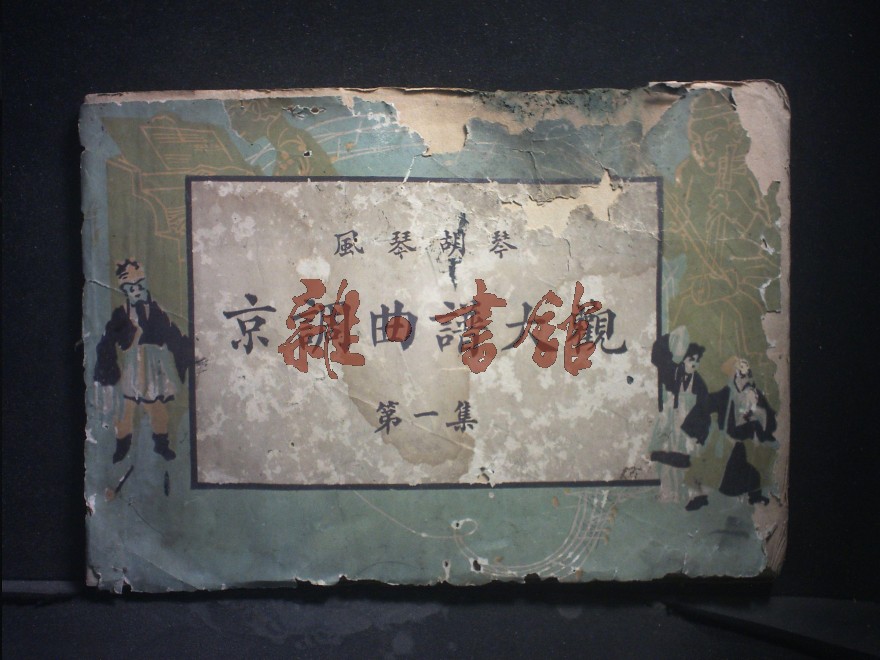 風琴胡琴
京調曲譜大觀
雜·書館
第一集